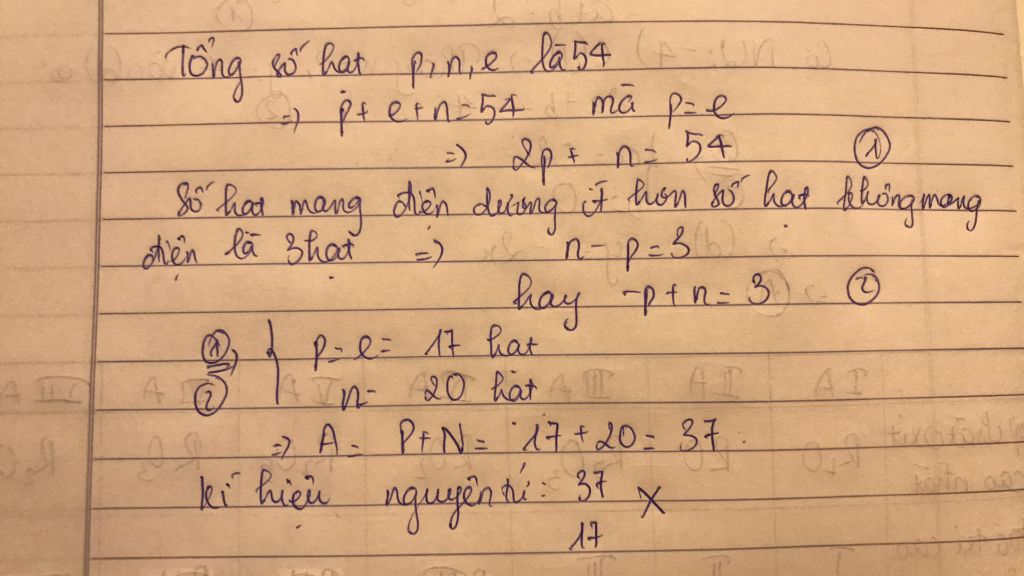 Tổng số hạt p, n, e là 54
=> p + e + n = 54 mà p = e
=> 2p + n = 54 ①
Số hạt mang điện dương ít hơn số hạt không mang
điện là 3 hạt => n - p = 3
hay -p + n = 3 ②
①, p = e = 17 hạt
② n = 20 hạt
=> A = P + N = 17 + 20 = 37
kí hiệu nguyên tử: 37 X
17